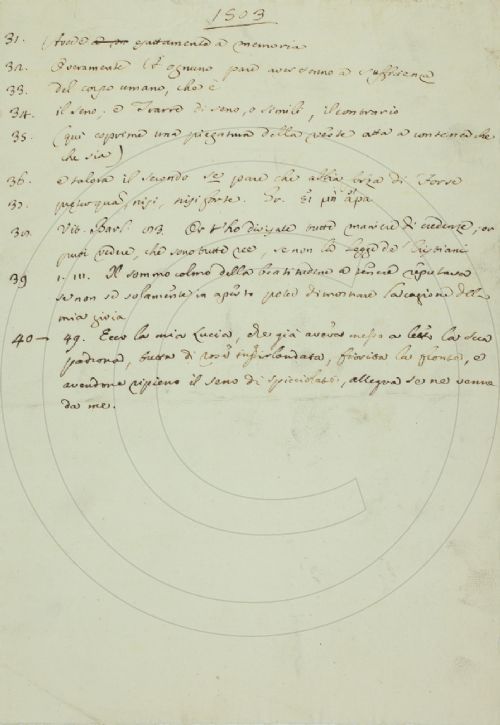 1503
31. (Avere esattamente a memoria
32. Veramente (E ognuno pare aver senno a sufficienza
33. del corpo umano, cho è
34. il seno; e Trarre di seno, o simili, il contrario
35. (qui coprime una piegatura della veste atta a contenere che
che sia)
36. e talora il secondo se pare che abbia forza di Forse
37. nisi, nisi forte. Gr. εἰ μὴ ἄρα
38. Vit. Barl. Or t'ho divisate tutte maniere di credenze; or
puoi vedere, che sono tutte ree, se non la legge de' Cristiani
39 1. III. Il sommo colmo della beatitudine a tenere reputava
se non se solamente in aperto poter dimostrare la cagione della
mia gioia
40 — 49. Ecco la mia Lucia, che già aveva messo a letto la sua
padrona, tutta di rose inghirlandata, fiorita la fronte, e
avendone ripieno il seno di spicciolate, allegra se ne venne
da me.